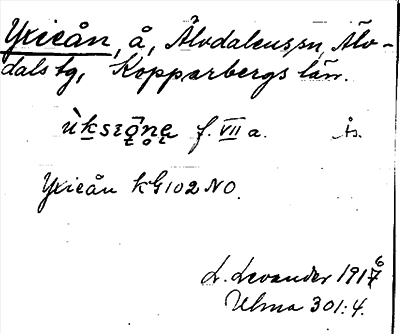 Yxieån, å, Älvdalens sn, Älv-
dals tg, Kopparbergs län.
f. VII a. ås.
Yxieån kG102 NO.
L. Levander 1916
Ulma 301:4.